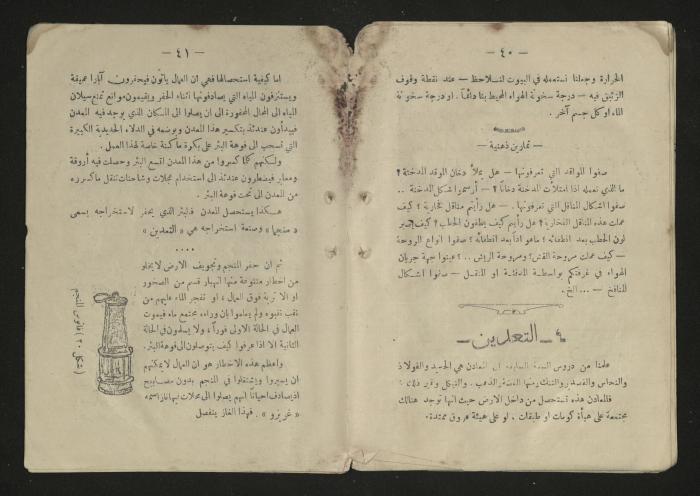 — ٤٠ —
الحرارة وجعلنا نستعمله في البيوت لنسلاحظ — عند نقطة وقوف
الزئبق فيه — درجة سخونة الهواء المحيط بنا دائماً . او درجة سخونة
الماء او كل جسم آخر .
— تمارين ذهنية —
صفوا المواقد التي تعرفونها — هل يملأ دخان الموقد المدخنة ؟
ما الذي نعمله اذا امتلأت المدخنة دخاناً ؟ — أرسموا شكل المدخنة ..
صفوا اشكال المناقل التي تعرفونها . — هل رأيتم مناقل فخارية ؟ كيف
عملت هذه المناقل الفخارية ؟ هل رأيتم كيف يطفون الحطب ؟ كيف يصير
لون الحطب بعد انطفائه ؟ ماهو اذاً بعد انطفائه ؟ صفوا انواع المروحة
— كيف عملت مروحة القش ؟ ومروحة الريش .. ؟ عينوا جهة جريان
الهواء في غرفتكم بواسطة المدفئة او المنقل — صفوا اشكال
المنافخ — ... الخ .
٤ — التعدين —
علمنا من دروس السنة السابقة ان المعادن هي الحديد والفولاذ
والنحاس والقصدير والتنك ومنها الفضة والذهب . والنيكل وغير ذلك :
فالمعادن هذه تستحصل من داخل الارض حيث انها توجد هنالك
مجتمعة على هيأة كومات او طبقات . او على هيئة عروق ممتدة .
— ٤١ —
اما كيفية استحصالها فهي ان العمال يأتون فيحفرون آباراً عميقة
ويستنزفون المياه التي يصادفونها اثناء الحفر ويقيمون موانع تمنع سيلان
المياه الى المحال المحفورة الى ان يصلوا الى المكان الذي يوجد فيه المعدن
فيبدأون عندئذ بتكسير هذا المعدن وبوضعه في الدلاء الحديدية الكبيرة
التي تسحب الى فوهة البئر على بكرة ماكنة خاصة لهذا العمل .
ولكنهم كلما كسروا من هذا المعدن اتسع البئر وحصلت فيه أروقة
ومعابر فيضطرون عندئذ الى استخدام عجلات وشاحنات تنقل ماكسرره
من المعدن الى تحت فوهة البئر .
هكذا يستحصل المعدن فالبئر الذي يحفر لاستخراجه يسمى
« منجما » وصنعة استخراجه هي « التعدين »
....
ثم ان حفر المنجم وتجويف الارض لا يخلو
من اخطار متنوعة منها انهيار قسم من الصخور
او الاتربة فوق العمال ، او تفجر الماء عليهم من
ثقب نقبوه ولم يعلموا بان وراءه مجتمع ماء فيموت
العمال في الحالة الاولى فوراً ، ولا يسلمون في الحالة
الثانية الا اذا عرفوا كيف يتوصلون الى فوهة البئر .
واعظم هذه الاخطار هو ان العمال لا يمكنهم
ان يسيروا ويشتغلوا في المنجم بدون مصابيح
اذ يصادف احيانا انهم يصلوا الى محلات فيها غاز اسمه
« غريزو » . فهذا الغاز ينفصل
( شكل ٢٠ ) فانوس المنجم